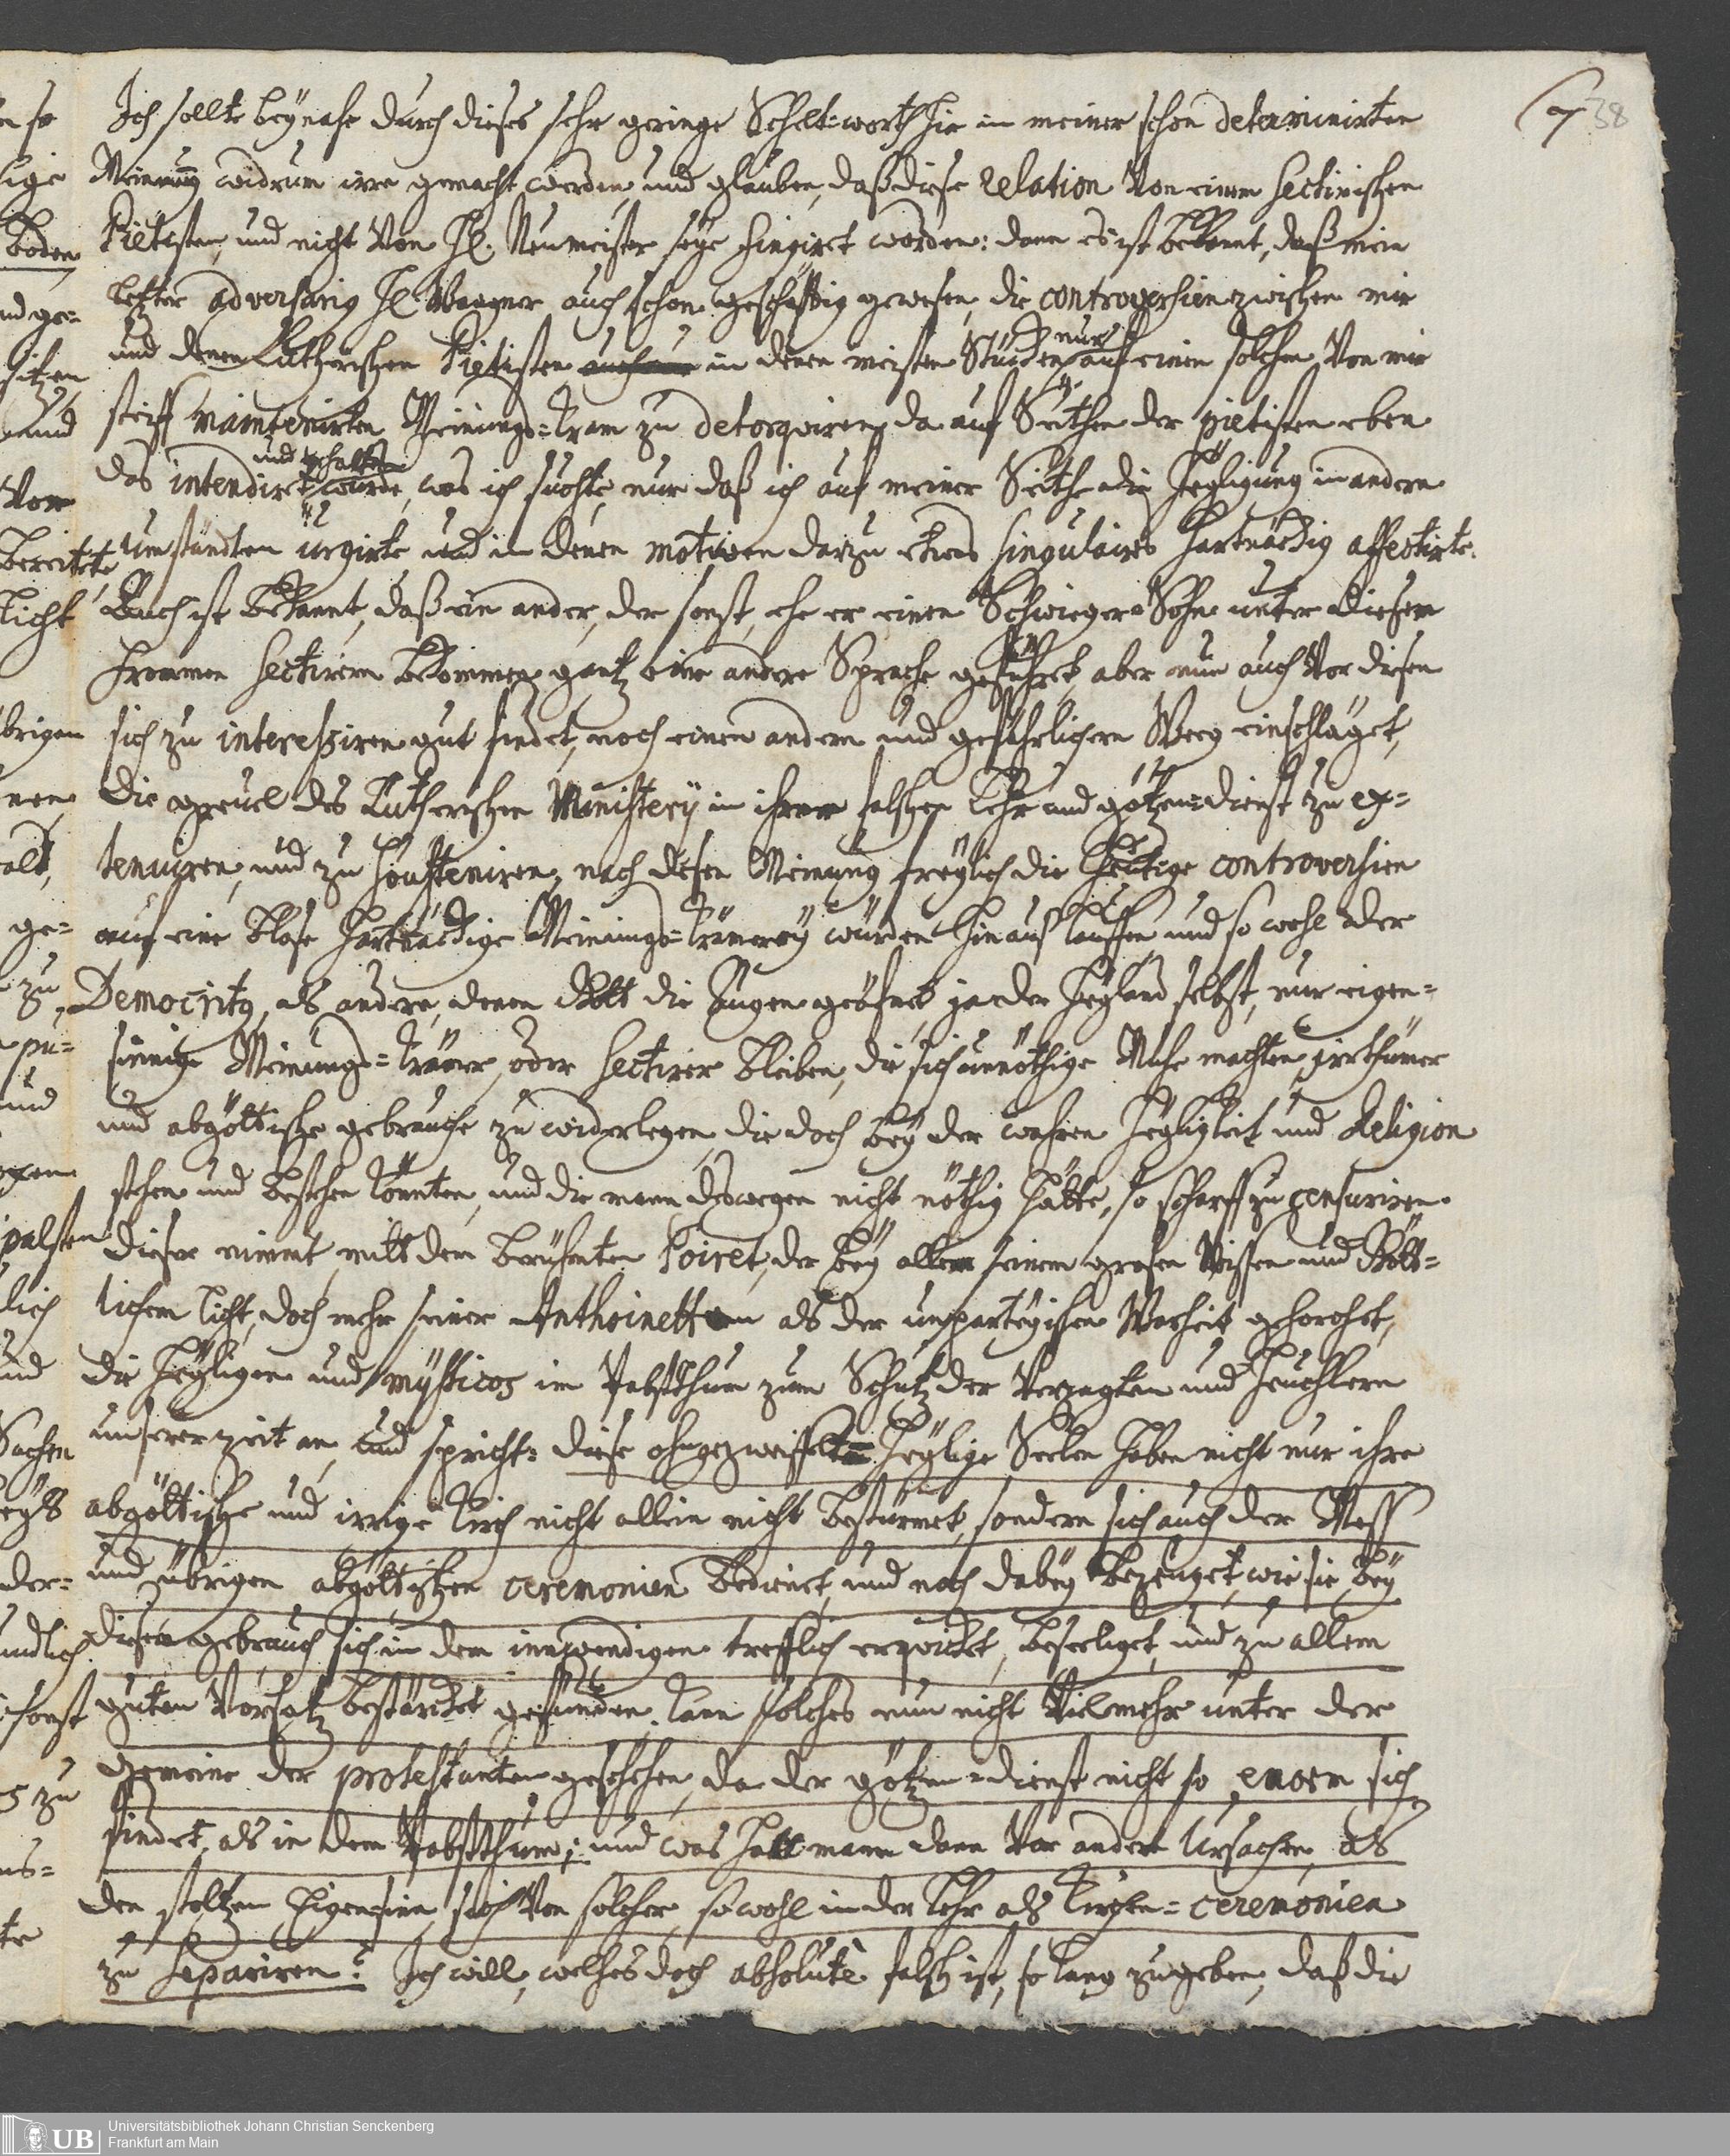 7 38
Ich sollte beynahe durch dieses sehr geringe Schelt-worth hie in meiner schon determinirten
Meinung widrum irre gemacht werden, und glauben, daß diese relation von einem Sectirischen
Pietisten, und nicht von H. Neumeister seye fingiret worden: dann es ist bekannt, daß mein
letzter adversarig H. Wagner auch schon geschäfftig gewesen, die controversien zwischen mir
und denen Lutherischen Pietisten in denen meisten Stücken nur auf einen solchen von mir
steiff maintenirten Meinungs-Kram zu detorquiren, da auf Seithen der pietisten eben
das intendiret und gehalten würde, was ich suchte, nur daß ich auf meiner Seithe die Heyligung in andern
umständten urgirte und in denen motiven darzu etwas singulaires hartnäckig affectirte.
Auch ist bekannt, daß ein ander, der sonst, ehe er einen Schwieger-Sohn unter diesen
frommen Sectirern bekommen, gantz eine andere Sprache geführet, aber nun auch vor diesen
sich zu interessiren gut findet, noch einen andern und gefährlichern Weeg einschläget,
die greuel des Lutherischen Ministerij in ihrer falschen Lehr und götzen-dienst zu ex-
tenuiren, und zu souteniren, nach dessen Meinung freylich die heutige controversien
auf eine blose hartnäckige Meinungs-Krämerey würden hinaus lauffen und so wohl der
Democritg, als andere, denen Gott die Augen geöfnet, ja der Heyland selbst, nur eigen-
sinnige Meinungs-Krämer, oder Sectirer bleiben, die sich unnöthige Mühe machten, irrthümer
und abgöttische gebräuche zu widerlegen, die doch bey der wahren Heyligkeit und Religion
stehen und bestehen könnten, und die mann deswegen nicht nöthig hätte, so scharff zu censuriren.
Dieser nimmt, mit dem berühmten Poiret, der bey allem seinem grosen Wissen und Gött-
lichem Licht, doch mehr seiner Anthoinetten als der unpartheyischen Warheit gehorchet,
die Heyligen und mysticos im Pabsthum zum Schutz der Verzagten und Heuchlern
unserer zeit an, und spricht: diese ohngezweiffelte Heylige Seelen haben nicht nur ihre
abgöttische und irrige Kirch nicht allein nicht bestürmet, sondern sich auch der Mess
und übrigen abgöttischen ceremonien bedienet, und noch dabey bezeuget, wie sie bey
diesem gebrauch sich in dem innwendigen trefflich erquicket, beseeliget, und zu allem
guten Vorsatz bestärcket gefunden. Kann solches nun nicht vielmehr unter der
gemeine der protestanten geschehen, da der götzen-dienst nicht so sich
findet, als in dem Pabstthum; und was hatt mann dann vor andere Ursachen, als
den stoltzen Eigensinn, sich von solcher, so wohl in der Lehr als Kirchen-ceremonien
zu separiren? Ich will, welches doch absolutè falsch ist, so lang zugeben, daß die
Universitätsbibliothek Johann Christian Senckenberg
Frankfurt am Main
UB